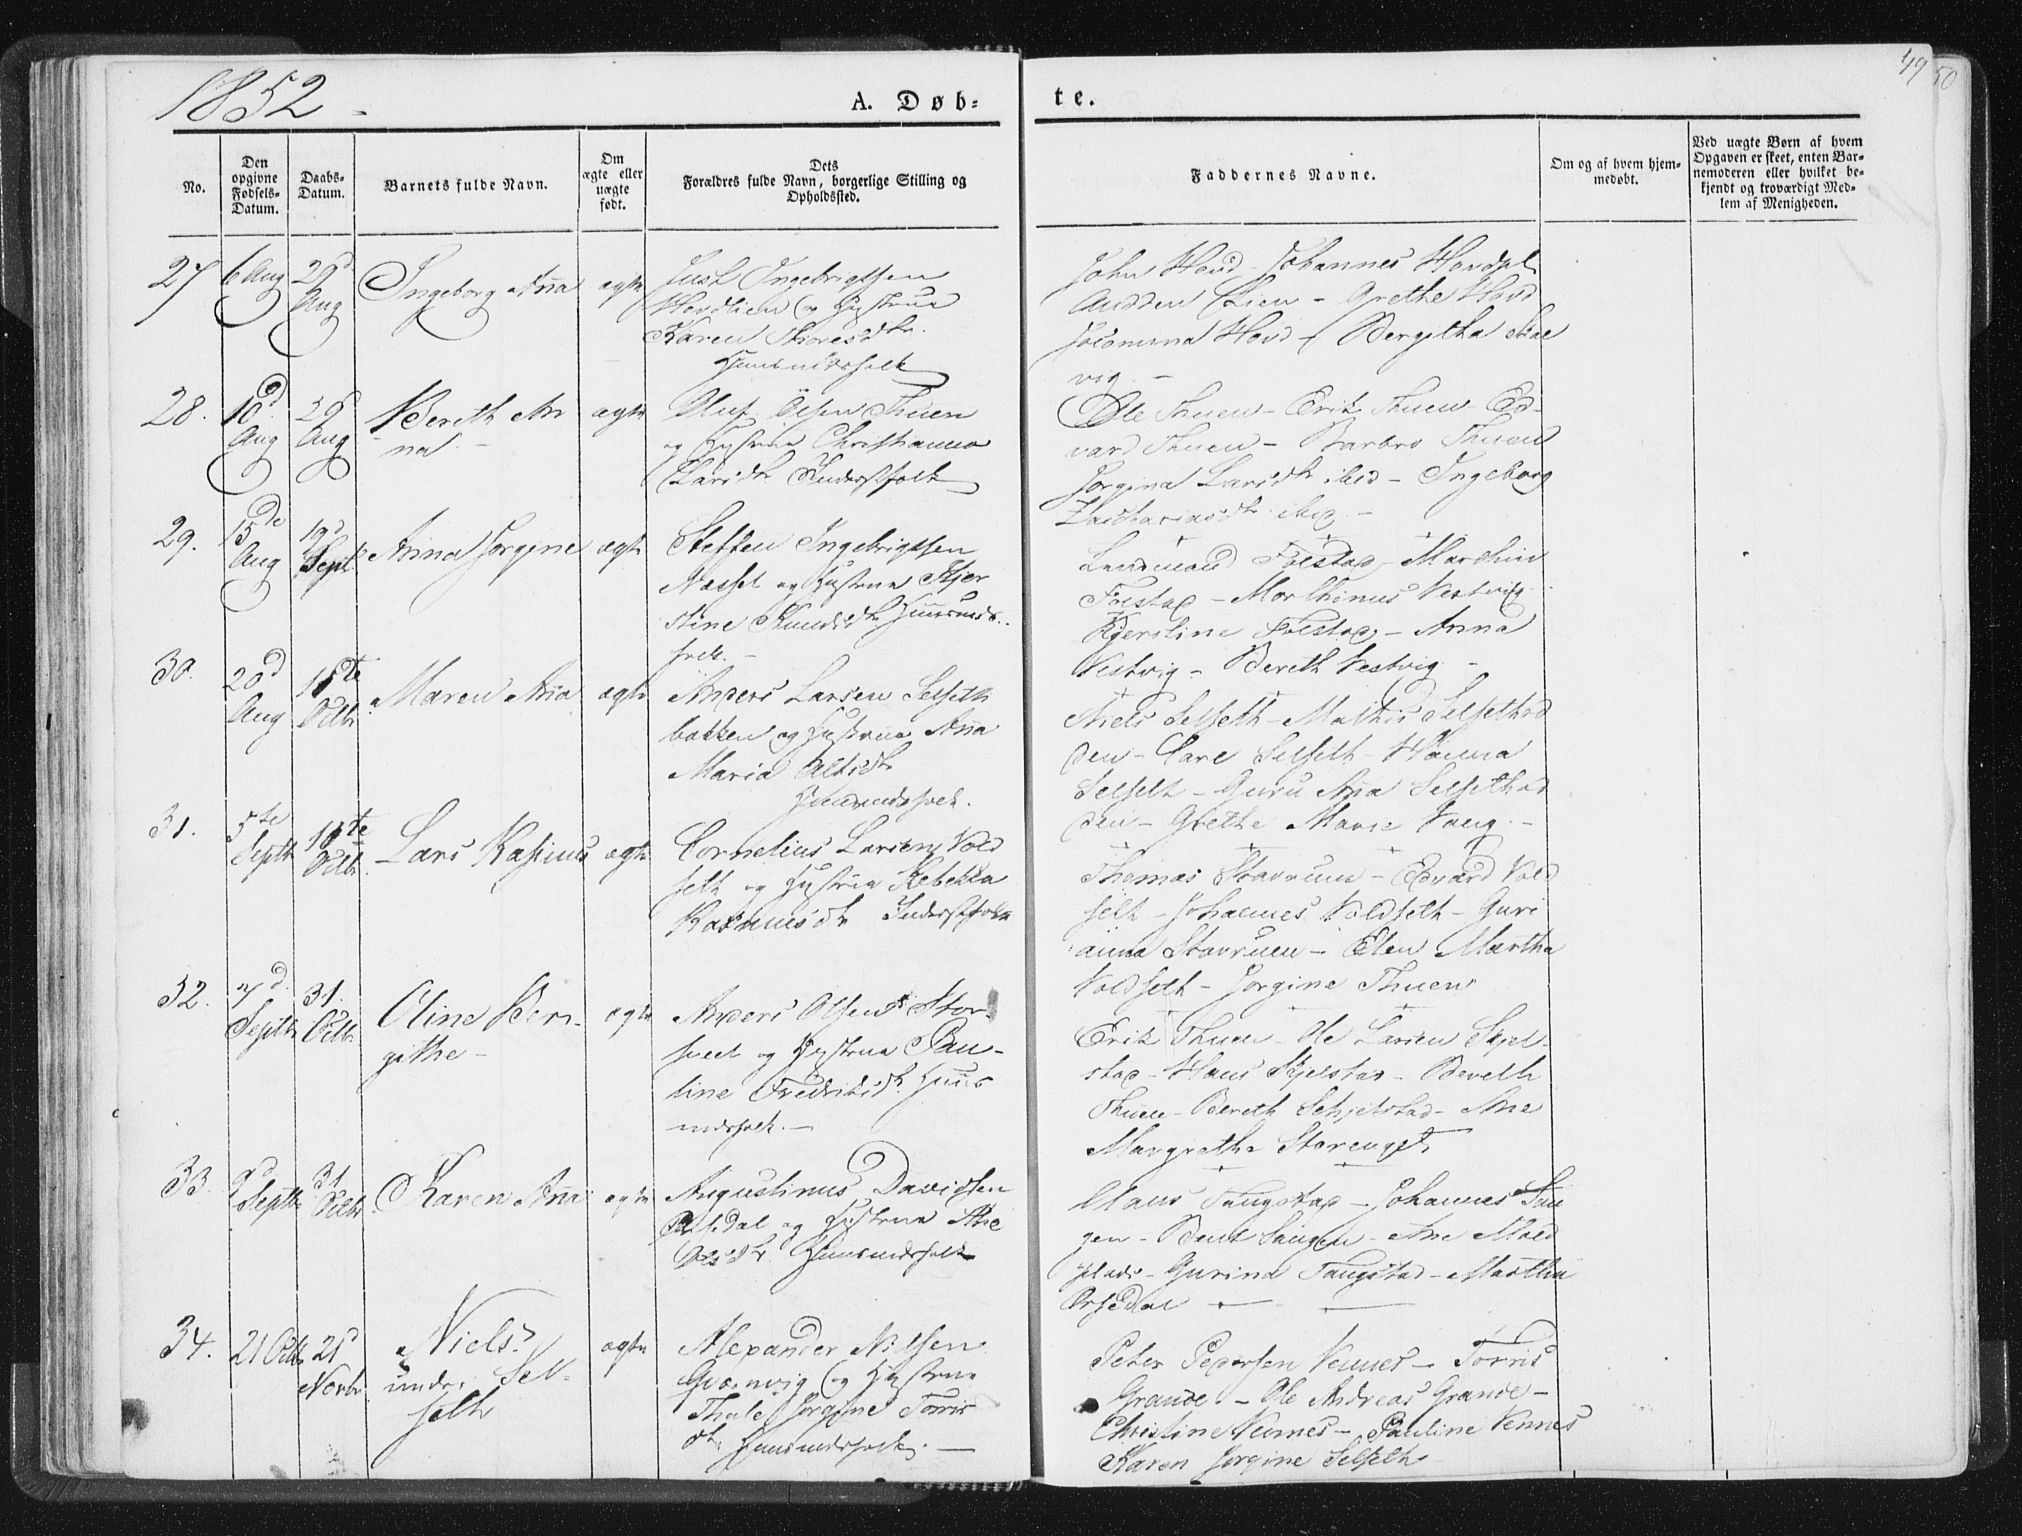 49 50
1852
A. Døb-
te.
No.
Den
opgivne
Fødsels-
Datum.
Daabs-
Datum.
Barnets fulde Navn.
Om
ægte eller
uægte
født.
Dets
Forældres fulde Navn, borgerlige Stilling og
Opholdssted.
Faddernes Navne.
Om og af hvem hjem-
medøbt.
Ved uægte Børn af hvem
Opgaven er skeet, enten Bar-
nemoderen eller hvilket be-
kjendt og troværdigt Med-
lem af Menigheden.
27 6 Aug
Aug
Ingeborg Aña ægte
Just Ingebrigtsen
Hovdlien og Hustrue
Karen Thoresdtr.
Huusmandsfolk
John Hovd - Johannes Hovdpl
Audden Lien - Grethe Hovd
Hovd - Bergitha Skae
vig -
28. 10d
Aug
Aug
Bereth An
na - ægte
Oluf Olsen Thuen
og Hustrue Christianna
Larsdtr Inderstfolk
Ole Thuen - Erik Thuen - Ed-
vard Thuen - Barbro Thuen
Jørgina Larsdtr ibid - Ingeborg
Zachariasdtr ibid -
29. 15de
Aug
19d
Sept.
Anna Jørgine ægte
Steffen Ingebrigtsen
Næsset og Hustrue Kjer
stine Knudsdtr Huusmds
folk. -
Folstad - Marthin
Folstad - Morthinus Vestvig
Kjerstine Folstad - Anna
Vestvig - Bereth Vestvig -
30. 20d
Aug
Octbr
Maren Aña ægte
Anders Larsen Selseth
bakken og Hustrue Aña
Maria
Huusmdsfolk.
Niels Selseth - Mathis Selsethød
den - Carl Selseth - Hanna
Selseth - Guru Aña Selsethød
den - Grethe Marie Vang -
31. 5te
Septbr
Octbr
Lars Rasmus ægte
Cornelius Larsen Vold
seth og Hustrue Rebekka
Rasmusdtr Inderstfolk
Thomas Stavruen - Edvard Vold
seth - Johannes Voldseth - Guri
anna Stavruen - Elen Martha
Voldseth - Jørgine Thuen
32. 7d
Septbr
31
Octbr
Oline Ber-
githe - ægte
Anders Olsen Stor-
og Hustrue Pau-
line Fredriksdtr. Huus
mdsfolk. -
Erik Thuen - Ole Larsen Skjel-
stad - Hans Skjelstad - Bereth
Thuen - Bereth Schjelstad - Ane
Margrethe Storenget
33. 9d
Septbr
31
Octbr
Karen Aña ægte
Augustinus Davidsen
og Hustrue Ane
Olsdtr. Huusmdsfolk
Claus Faugstad - Johannes Sau
gen - Bent Saugen - Ane Mold
plads - Gurina Faugstad - Martha
Orsedal -
34. 21 Octbr 21
Novbr
Niels
under Sel-
seth
ægte
Alexander Nilsen
Grønvig og Hustrue
Thale Jørgine Torris
dtr Huusmdsfolk. -
Peter Pedersen Vennes - Torris
Grande - Ole Andreas Grande -
Christine Vennes - Pauline Vennes
Karen Jørgine Selseth